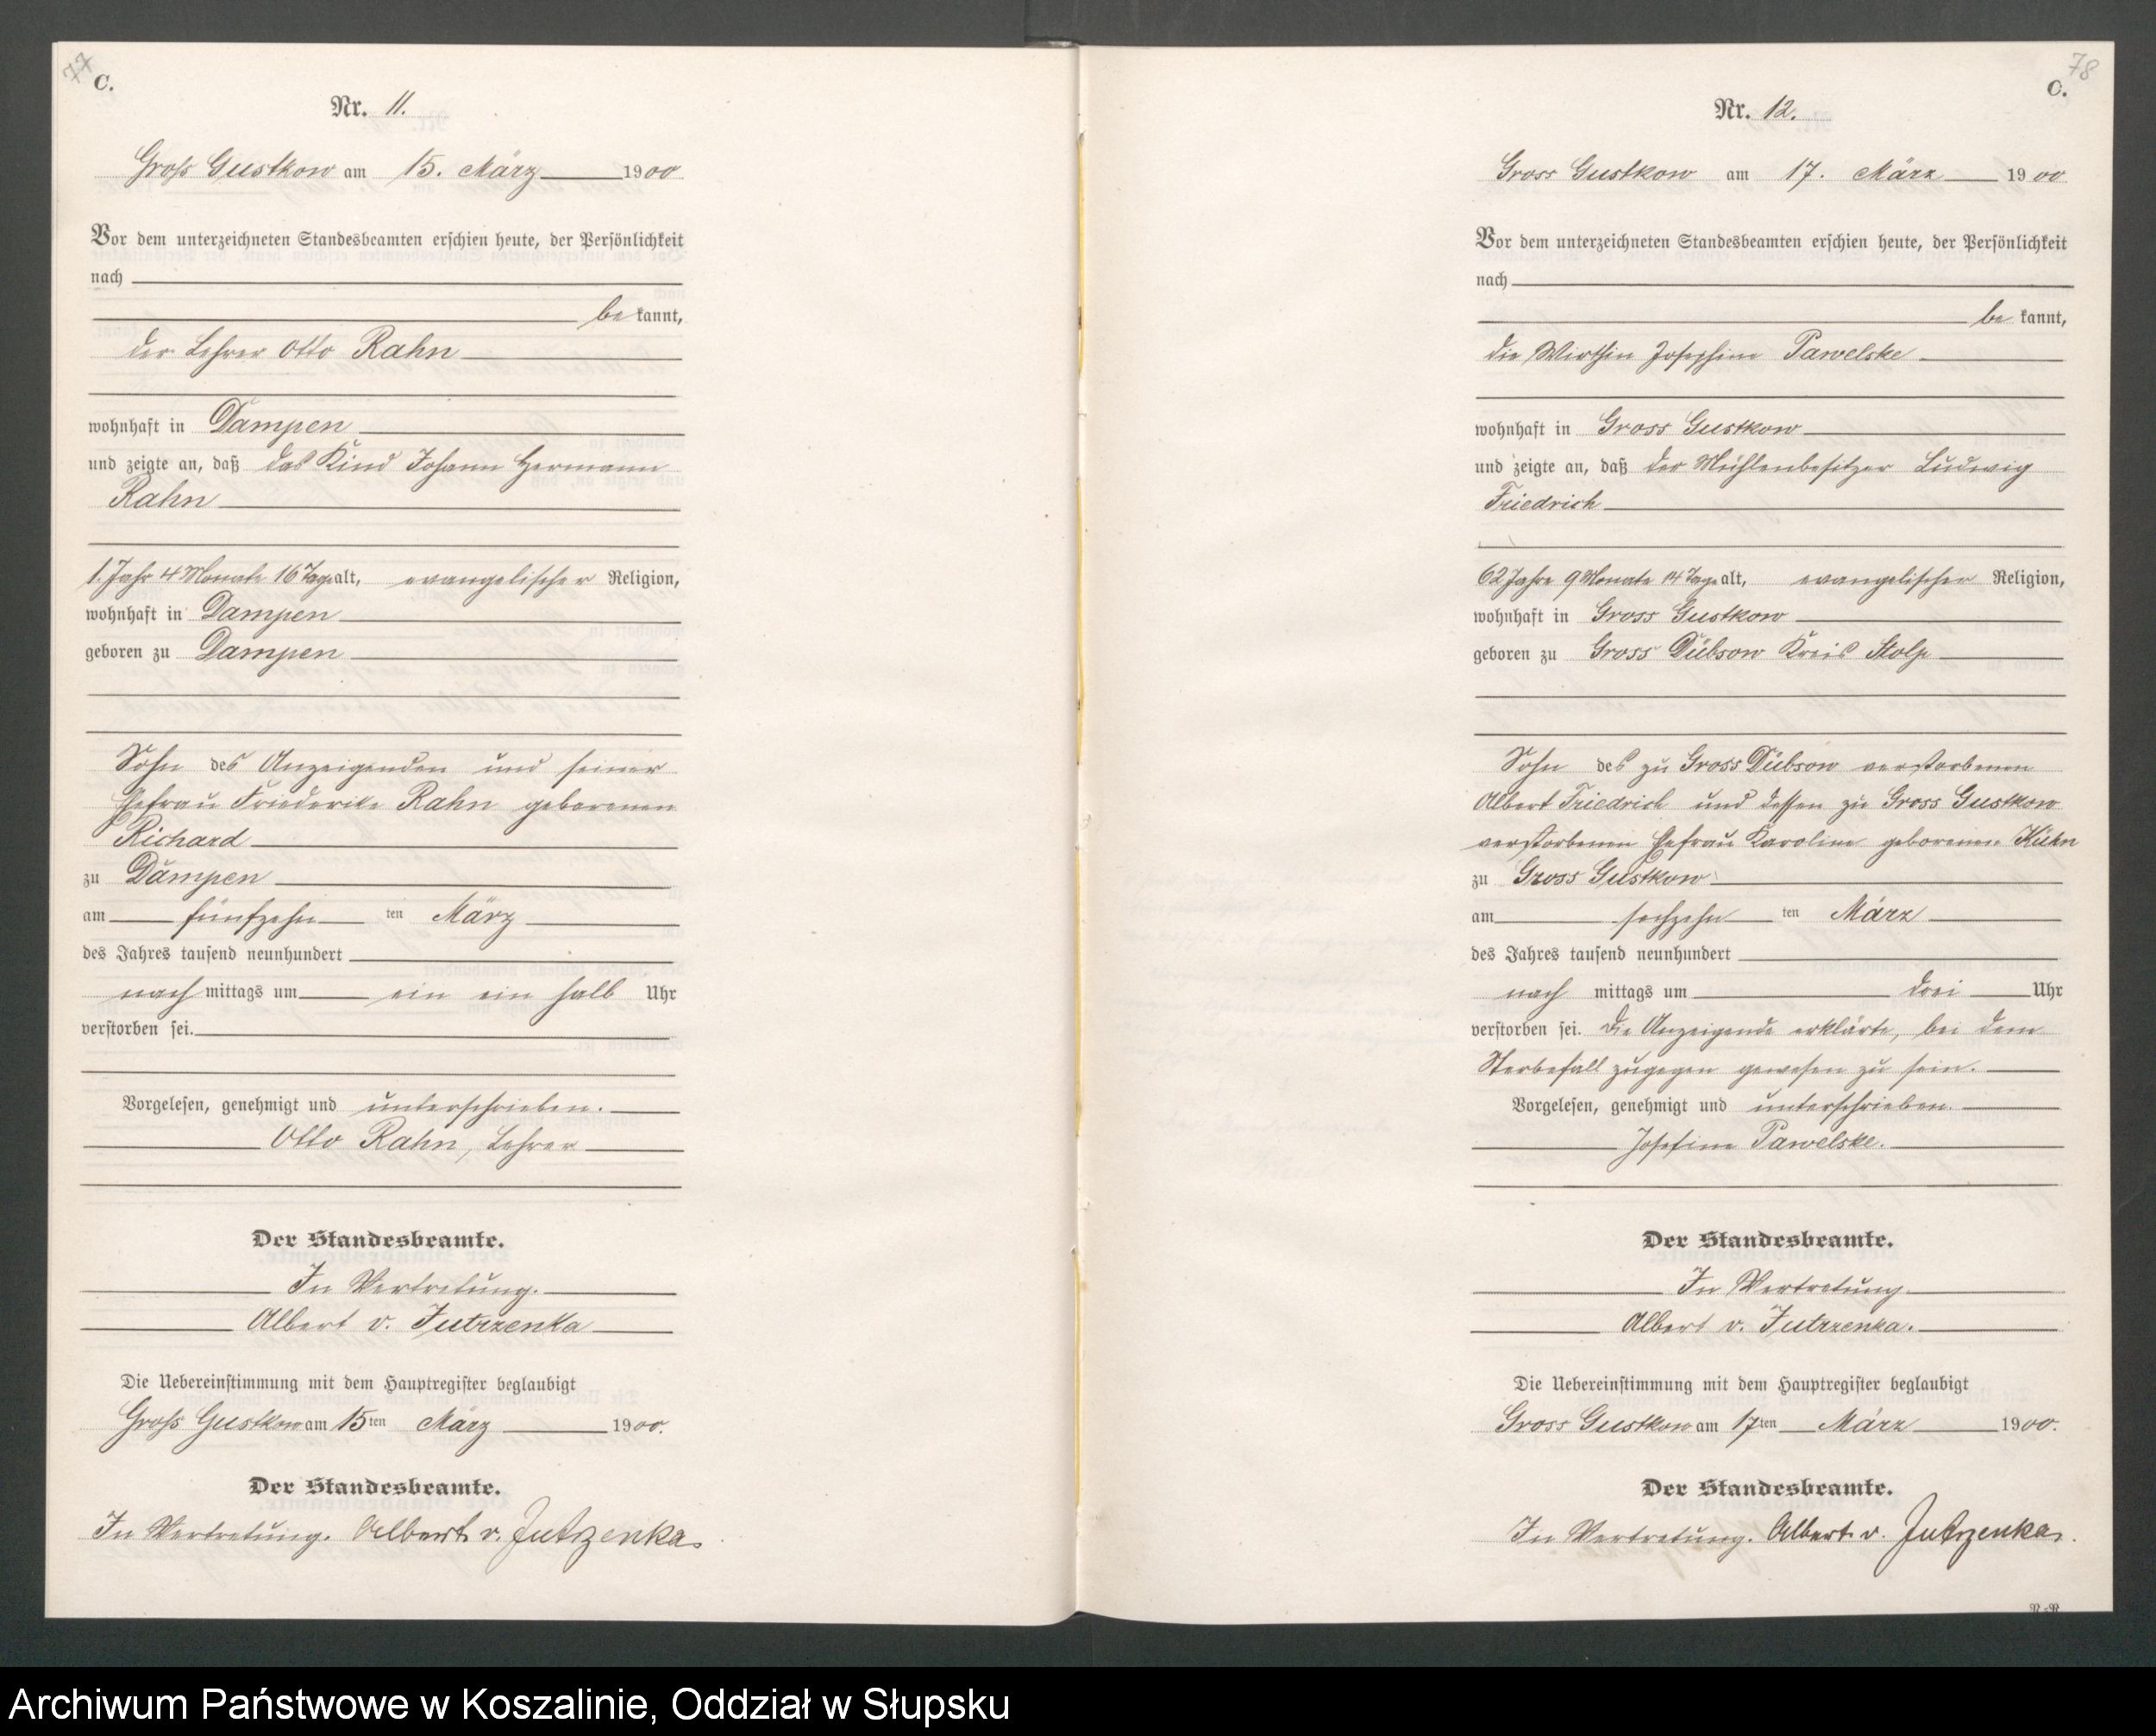 77
C.
Nr. 11.
Groß Gustkow am 15. März 1900
Vor dem unterzeichneten Standesbeamten erschien heute, der Persönlichkeit
nach
be kannt,
der Lehrer Otto Rahn
wohnhaft in Dampen
und zeigte an, daß das Kind Johann Hermann
Rahn
1 Jahr 4 Monate 16 Tage alt, evangelischer Religion,
wohnhaft in Dampen
geboren zu Dampen
Sohn des Anzeigenden und seiner
Ehefrau Friederike Rahn geborenen
Richard
zu Dampen
am fünfzehn ten März
des Jahres tausend neunhundert
nach mittags um ein ein halb Uhr
verstorben sei.
Vorgelesen, genehmigt und unterschrieben.
Otto Rahn, Lehrer
Der Standesbeamte.
In Vertretung.
Albert v. Jutrzenka
Die Uebereinstimmung mit dem Hauptregister beglaubigt
Groß Gustkow am 15ten März 1900.
Der Standesbeamte.
In Vertretung. Albert v. Jutrzenka.
78
C.
Nr. 12.
Gross Gustkow am 17. März 1900
Vor dem unterzeichneten Standesbeamten erschien heute, der Persönlichkeit
nach
be kannt,
die Wirthin Josephine Pawelske
wohnhaft in Gross Gustkow
und zeigte an, daß der Mühlenbesitzer Ludwig
Friedrich
62 Jahre 9 Monate 14 Tage alt, evangelischer Religion,
wohnhaft in Gross Gustkow
geboren zu Gross Dübsow Kreis Stolp
Sohn des zu Gross Dübsow verstorbenen
Albert Friedrich und dessen zu Gross Gustkow
verstorbenen Ehefrau Karoline geborenen Kühn
zu Gross Gustkow
am sechzehn ten März
des Jahres tausend neunhundert
nach mittags um drei Uhr
verstorben sei. Die Anzeigende erklärte, bei dem
Sterbefall zugegen gewesen zu sein.
Vorgelesen, genehmigt und unterschrieben.
Josefine Pawelske.
Der Standesbeamte.
In Vertretung.
Albert v. Jutrzenka.
Die Uebereinstimmung mit dem Hauptregister beglaubigt
Gross Gustkow am 17ten März 1900.
Der Standesbeamte.
In Vertretung. Albert v. Jutrzenka.
Archiwum Państwowe w Koszalinie, Oddział w Słupsku